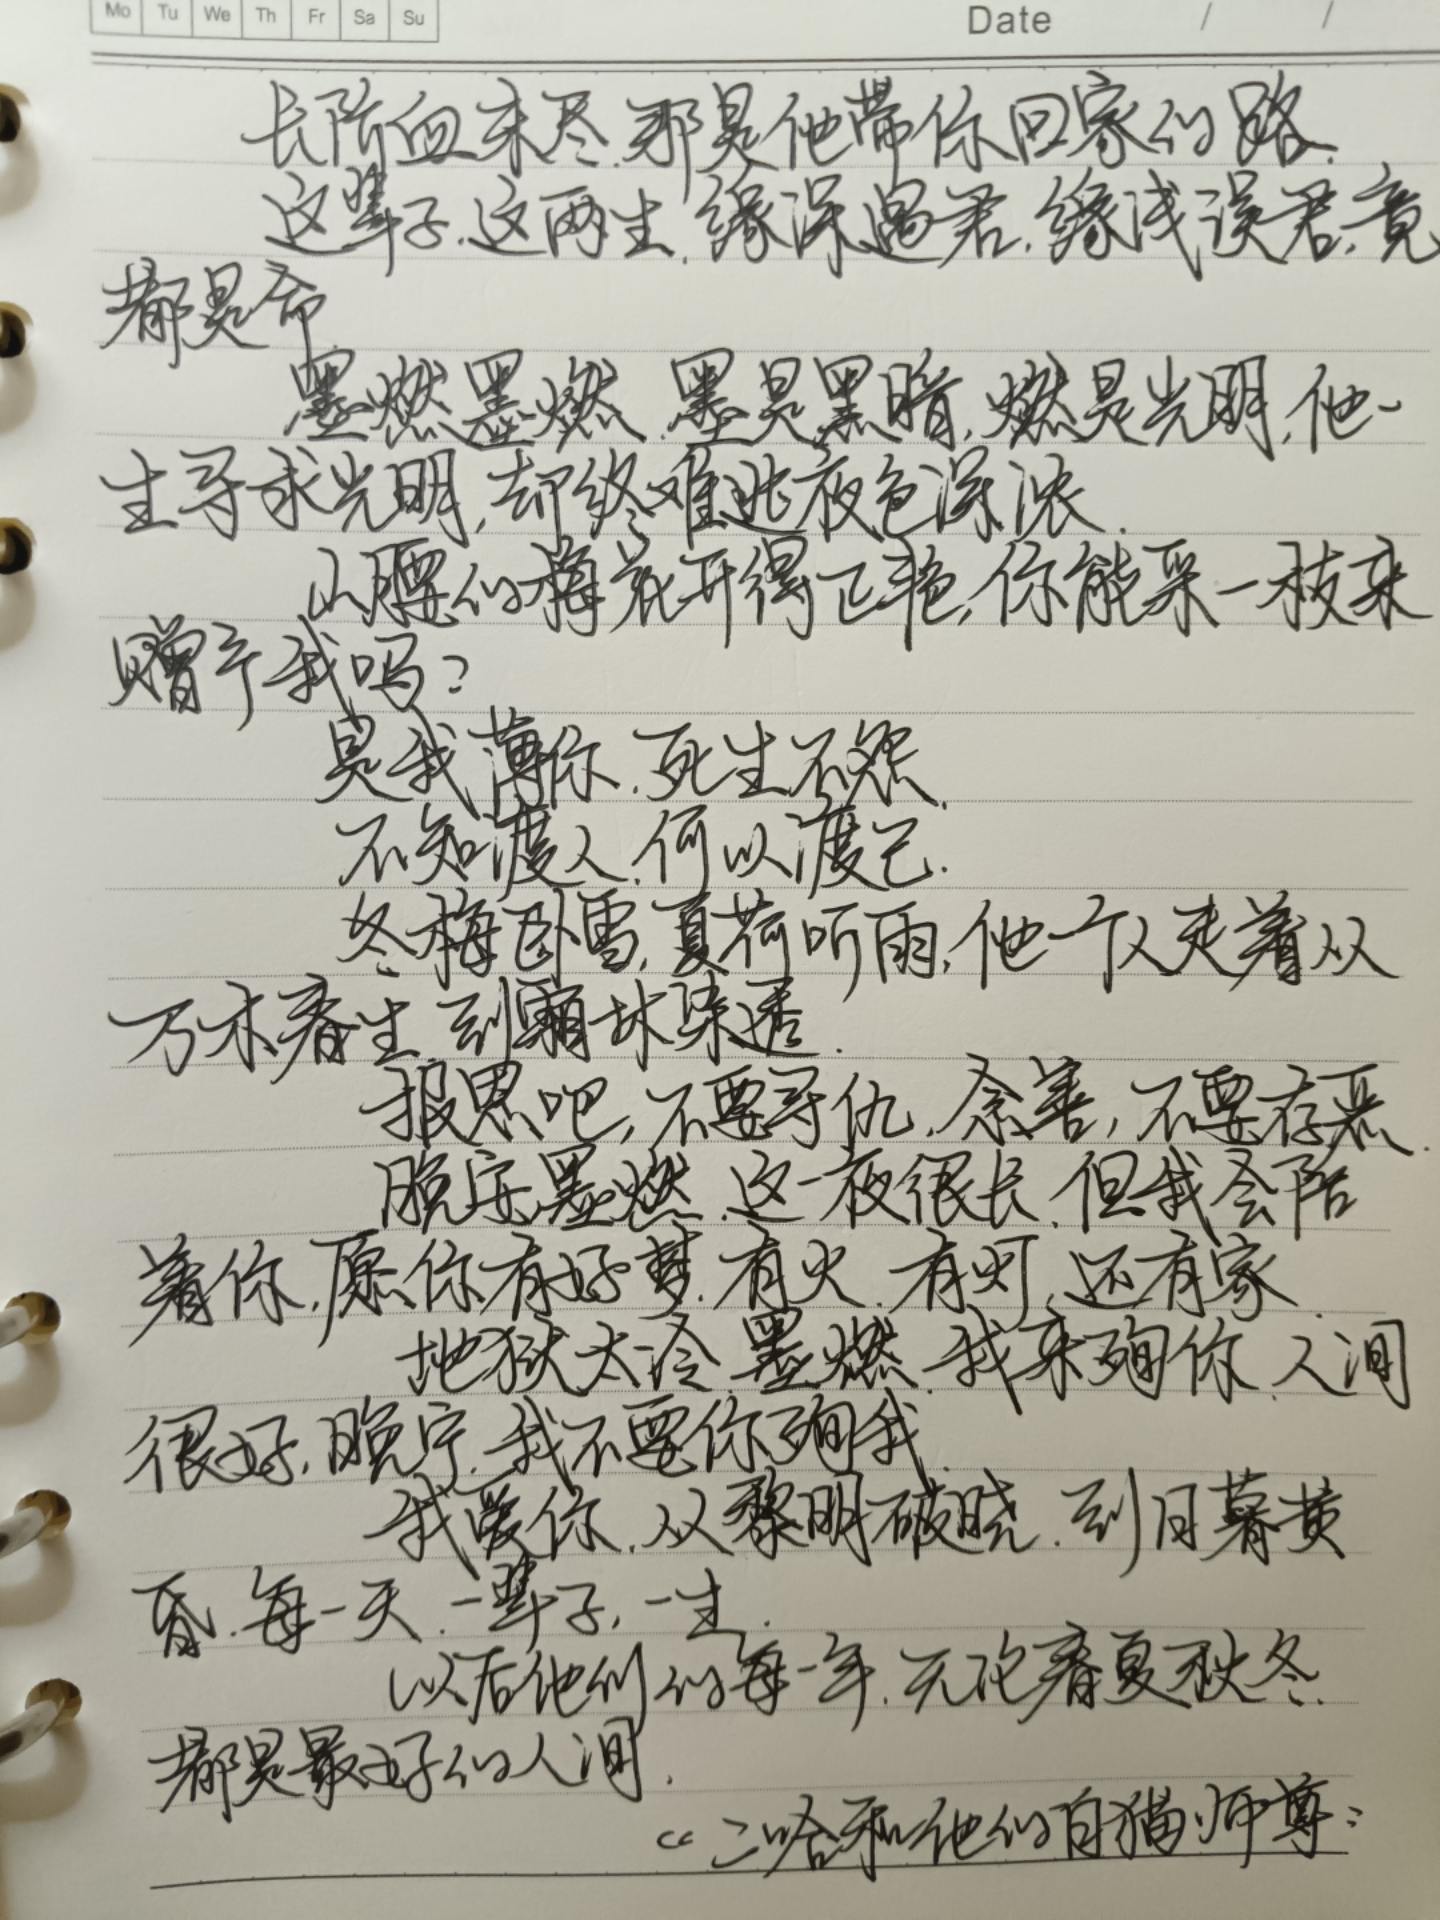 Mo Tu We Th Fr Sa Su
Date / /
长阶血未尽.那是他带你回家的路.
这辈子.这两生.缘深遇君.缘浅误君.竟
都是命.
墨燃墨燃.墨是黑暗,燃是光明,他一
生寻求光明,却终难逃夜色深浓.
山腰的梅花开得正艳,你能采一枝来
赠予我吗?
是我薄你.死生不怨.
不知渡人.何以渡己.
冬梅卧雪,夏荷听雨,他一个人走着从
万木春生.到霜林染透.
报恩吧,不要寻仇.余善,不要存恶.
晚宁墨燃.这一夜很长.但我会陪
着你.愿你有好梦.有火.有灯.还有家.
地狱太冷.墨燃.我来殉你.人间
很好,晚宁.我不要你殉我.
我爱你.从黎明破晓.到日暮黄
昏.每一天.一辈子,一生.
以后他们的每一年.无论春夏秋冬.
都是最好的人间.
“二哈和他的白猫师尊”